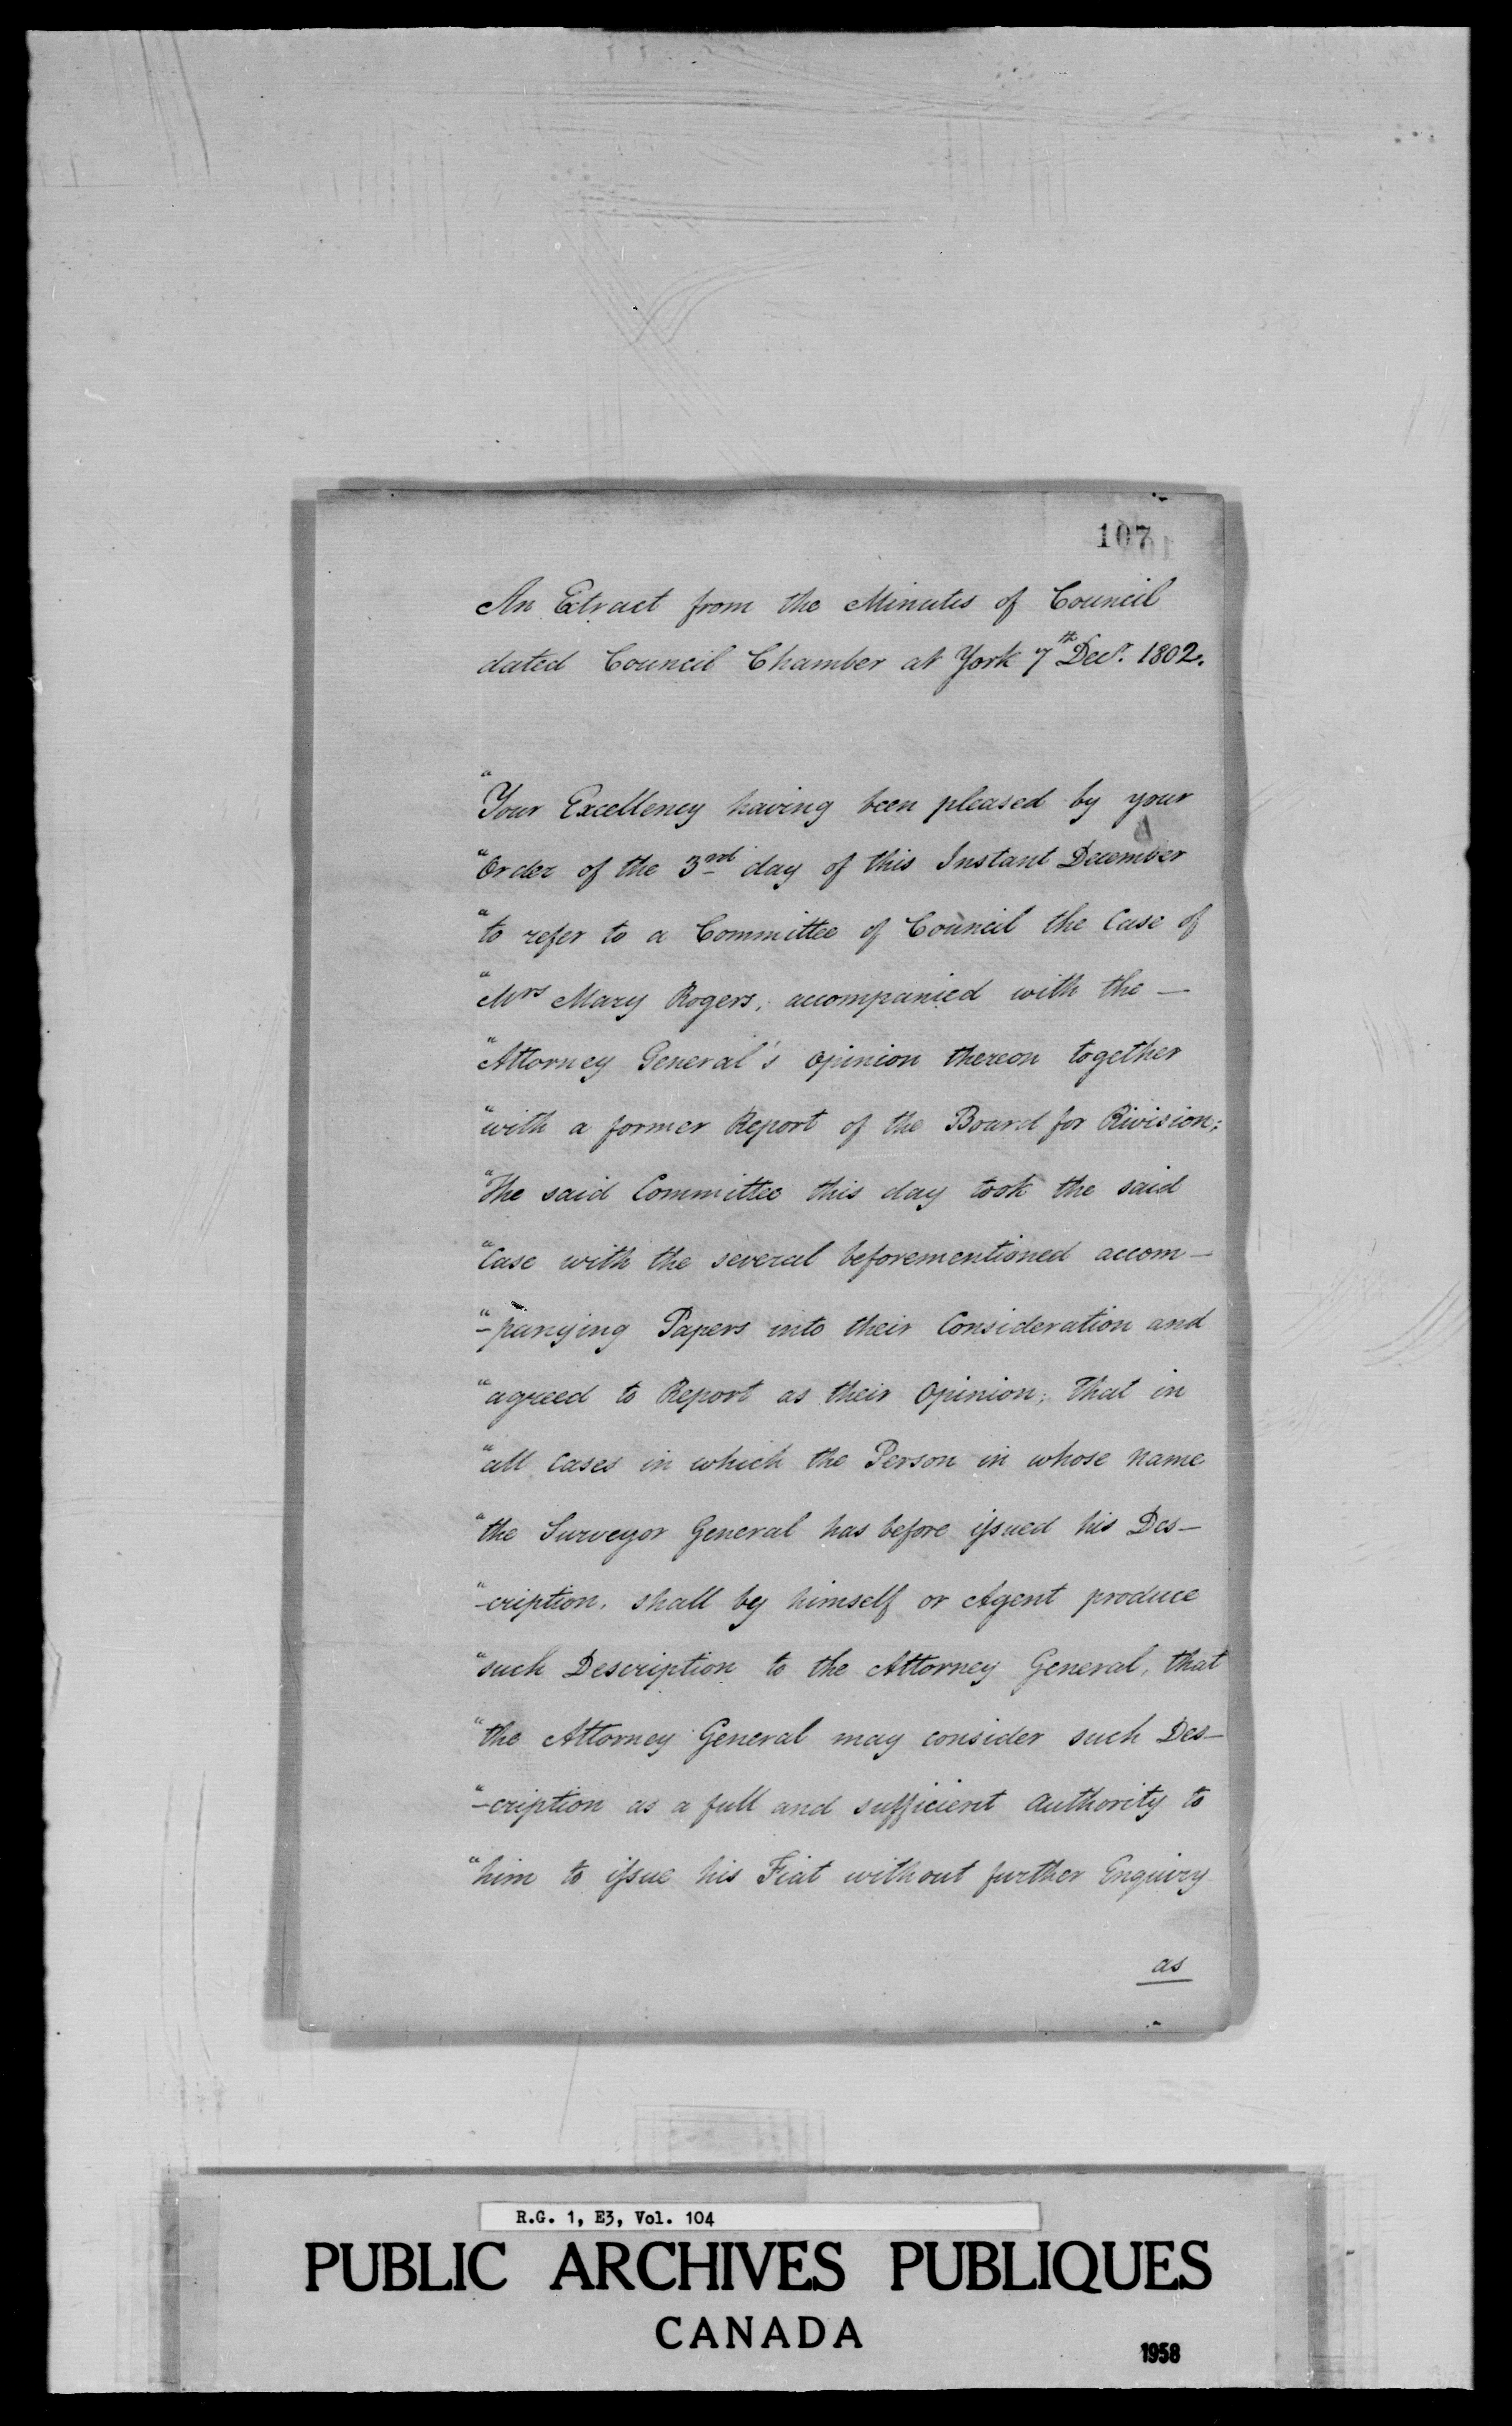 107
An Extract from the Minutes of Council
dated Council Chamber at York 7th Decr. 1802.
"Your Excellency having been pleased by your
"Order of the 3rd day of this Instant December
"to refer to a Committee of Council the Case of
"Mrs Mary Rogers, accompanied with the —
"Attorney General's opinion thereon together
"with a former Report of the Board for Rivision;
"The said Committee this day took the said
"Case with the several beforementioned accom—
"-panying Papers into their Consideration and
"agreed to Report as their Opinion; That in
"all Cases in which the Person in whose name
"the Surveyor General has before issued his Des—
"-cription, shall by himself or Agent produce
"such Description to the Attorney General, that
"the Attorney General may consider such Des—
"-cription as a full and sufficient Authority to
"him to issue his Fiat without further Enquiry
as
R.G. 1, E3, Vol. 104
PUBLIC ARCHIVES PUBLIQUES
CANADA
1958